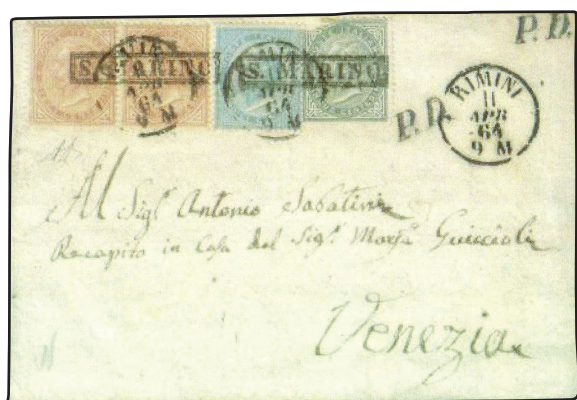 P. D.
S. MARINO
S. MARINO
APR
64
9 M
APR
64
9 M
P. D.
RIMINI
11
APR
64
9 M
Al Sigl. Antonio Sabatini
Recapito in Casa del Sigl. March. Guiccioli
Venezia